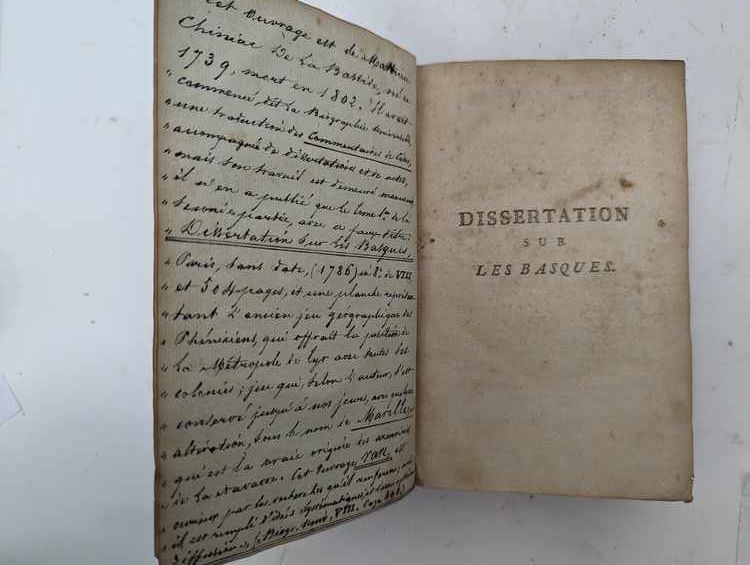 Cet Ouvrage est de Mathieu
Chiniac De La Bastide, né en
1739, mort en 1802. "Il avait
" commencé, dit la Biographie universelle,
" une traduction des Commentaires de César,
" accompagnée de dissertations et de notes,
" mais son travail est demeuré manuscrit
" il n'en a publié que le tome 1er de la
" seconde partie, avec ce faux titre:
" Dissertation sur les Basques,
" Paris, sans date, (1786) in 8º. de VIII
" et 504 pages, et une planche représen
" tant l'ancien jeu géographique des
" Phéniciens, qui offrait la position de
" la Métropole de Tyr avec toutes ses
" colonies; jeu que, selon l'auteur, s'est
" conservé jusqu'à nos jours, avec quelque
" altération, sous le nom de Marelle,
" qui est la vraie origine des armoiries
" de la Navarre. Cet Ouvrage rare est
" curieux par les recherches qu'il renferme; mais
" il est rempli d'idées systématiques et
" diffusion." (Biogr. univ., VIII. page
DISSERTATION
SUR
LES BASQUES.